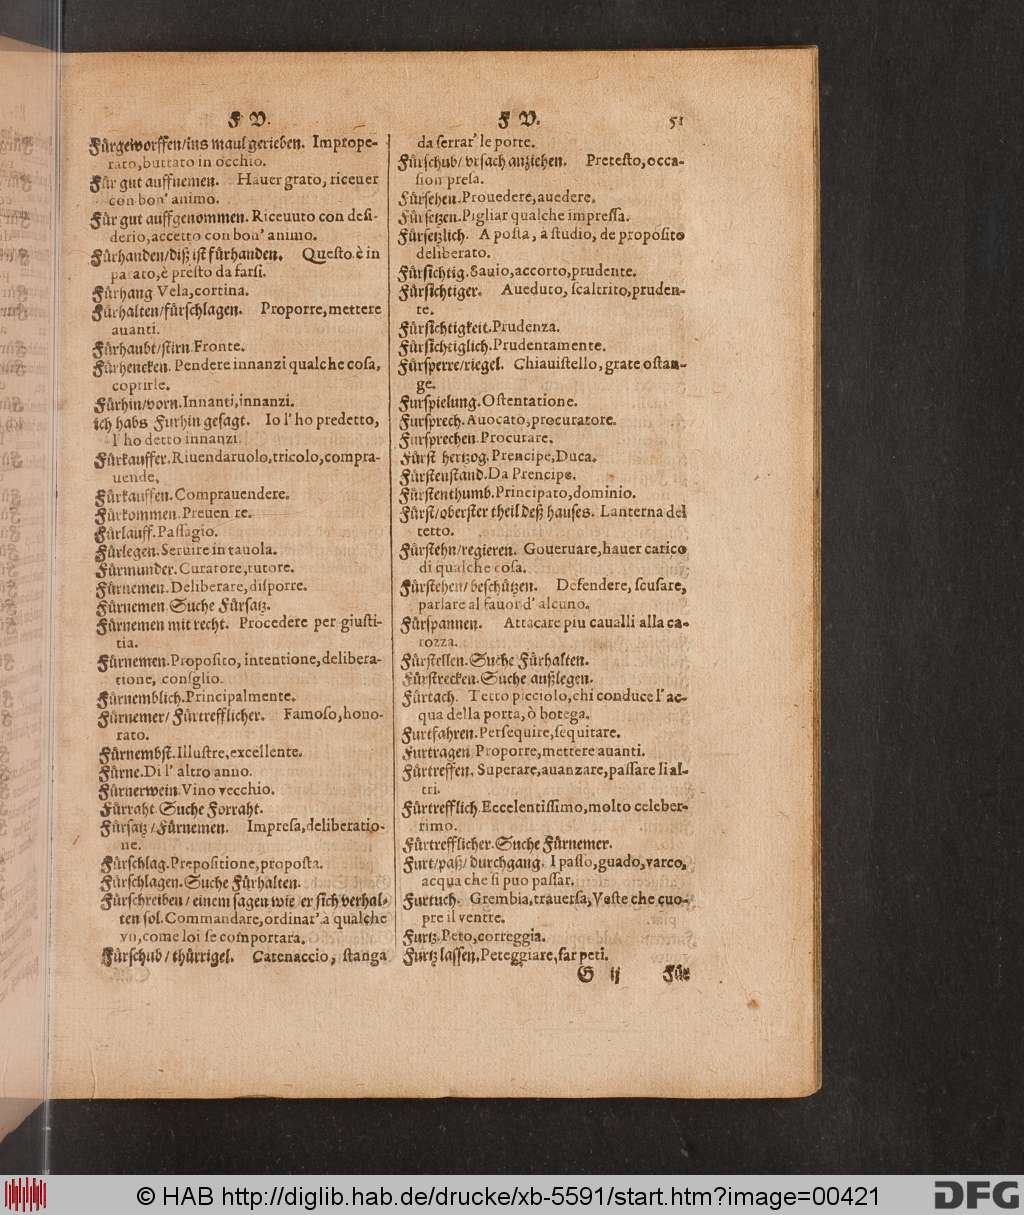 F V.
Fürgeworffen/ins maul gerieben. Imprope-
rato,buttato in occhio.
Für gut auffnemen. Hauer grato, riceuer
con bon' animo.
Für gut auffgenommen. Riceuuto con desi-
derio,accetto con bon' animo.
Fürhanden/diß ist fürhanden. Questo è in
parato,è presto da farsi.
Fürhang Vela,cortina.
Fürhalten/fürschlagen. Proporre,mettere
auanti.
Fürhaubt/stirn.Fronte.
Fürhencken. Pendere innanzi qualche cosa,
coprirle.
Fürhin/vorn.Innanti,innanzi.
ich habs Furhin gesagt. Io l' ho predetto,
l' ho detto innanzi.
Fürkauffer.Riuendaruolo,tricolo,compra-
uende.
Fürkauffen.Comprauendere.
Fürkommen.Preuen re.
Fürlauff.Passagio.
Fürlegen.Seruire in tauola.
Fürmunder.Curatore,tutore.
Fürnemen.Deliberare,disporre.
Fürnemen.Suche Fürsatz.
Fürnemen mit recht. Procedere per giusti-
tia.
Fürnemen.Proposito, intentione,delibera-
tione, consglio.
Fürnemblich.Principalmente.
Fürnemer/Fürtrefflicher. Famoso,hono-
rato.
Fürnembst.Illustre,excellente.
Fürne.Di l' altro anno.
Fürnerwein.Vino vecchio.
Fürraht.Suche Forraht.
Fürsatz/Fürnemen. Impresa,deliberatio-
ne.
Fürschlag.Prepositione,proposta.
Fürschlagen.Suche Fürhalten.
Fürschreiben/einem sagen wie er sich verhal-
ten sol.Commandare,ordinar' a qualche
vn,come loi se comportara.
Fürschub/thürrigel. Catenaccio, stanga
F V. 51
da serrar' le porte.
Fürschub/vrsach anziehen. Pretesto,occa-
sion presa.
Fürsehen.Prouedere,auedere.
Fürsetzen.Pigliar qualche impressa.
Fürsetzlich. A posta, à studio, de proposito
deliberato.
Fürsichtig.Sauio,accorto,prudente.
Fürsichtiger. Aueduto, scaltrito,pruden-
te.
Fürsichtigkeit.Prudenza.
Fürsichtiglich.Prudentamente.
Fürsperre/riegel. Chiauistello,grate ostan-
ge.
Furspielung.Ostentatione.
Fursprech.Auocato,procuratore.
Fursprechen.Procurare.
Fürst hertzog.Prencipe,Duca.
Fürstenstand.Da Prencipe.
Fürstenthumb.Principato,dominio.
Fürst/oberster theil deß hauses. Lanterna del
tetto.
Fürstehn/regieren. Goueruare,hauer carico
di qualche cosa.
Fürstehen/beschützen. Defendere,scusare,
parlare al fauor d' alcuno.
Fürspannen. Attacare piu caualli alla ca-
rozza.
Fürstellen.Suche Fürhalten.
Fürstrecken.Suche außlegen.
Fürtach. Tetto picciolo,chi conduce l' ac-
qua della porta,ò botega.
Furtfahren.Persequire,sequitare.
Furtragen Proporre,mettere auanti.
Fürtreffen. Superare,auanzare,passare li al-
tri.
Fürtrefflich.Eccelentissimo,molto celeber-
rimo.
Fürtrefflicher.Suche Fürnemer.
Furt/paß/durchgang. I passo,guado,varco,
acqua che si puo passar.
Furtuch. Grembia,trauersa,Veste che cuo-
pre il ventre.
Furtz.Peto,correggia.
Furtz lassen.Peteggiare,far peti.
G ij Für
© HAB http://diglib.hab.de/drucke/xb-5591/start.htm?image=00421
DFG